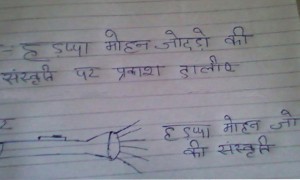 = हडप्पा मोहन जोदड़ो की
संस्कृति पर प्रकाश डालीए
हडप्पा मोहन जो
की संस्कृति